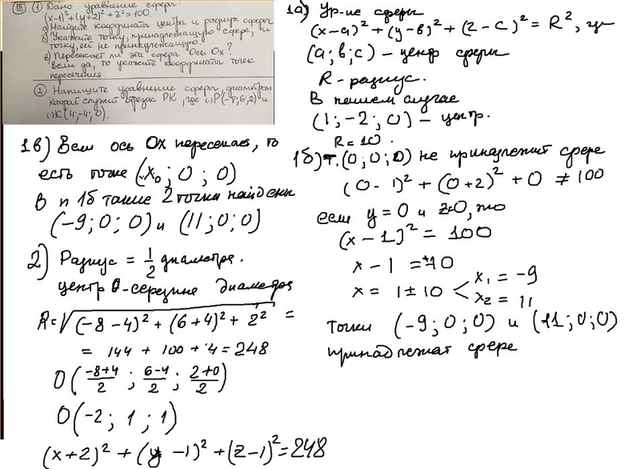 III 1) Дано уравнение сферы
(x-1)²+(y+2)²+z²=100.
а) Найдите координаты центра и радиус сферы
б) Укажите точку, принадлежащую сфере, и
точку, ей не принадлежащую.
в) Пересекает ли эта сфера ось Ox?
Если да, то укажите координаты точек
пересечения.
2) Напишите уравнение сферы, диаметром
которой служит отрезок PK, где P(-8;6;2) и
K(4;-4;0).
1а) Ур-ие сферы
(x-a)²+(y-в)²+(z-c)²=R², где
(a; в; c) – центр сферы
R - радиус.
В нашем случае
(1; -2; 0) – центр.
R = 10.
1б) т. (0; 0; 0) не принадлежит сфере
(0-1)² + (0+2)² + 0 ≠ 100
если y = 0 и z=0, то
(x-1)² = 100
x - 1 = ±10
x = 1 ± 10 x₁ = -9
x₂ = 11
точки (-9; 0; 0) и (11; 0; 0)
принадлежат сфере
1в) Если ось Ox пересекает, то
есть точка (x₀; 0; 0)
в п 1б такие 2 точки найдены
(-9; 0; 0) и (11; 0; 0)
2) Радиус = 1/2 диаметра.
центр O-середина диаметра
R=√(-8-4)² + (6+4)² + 2² =
= 144 + 100 + 4 = 248
O(-8+4/2 ; 6-4/2 ; 2+0/2)
O(-2; 1; 1)
(x+2)² + (y-1)² + (z-1)² = 248